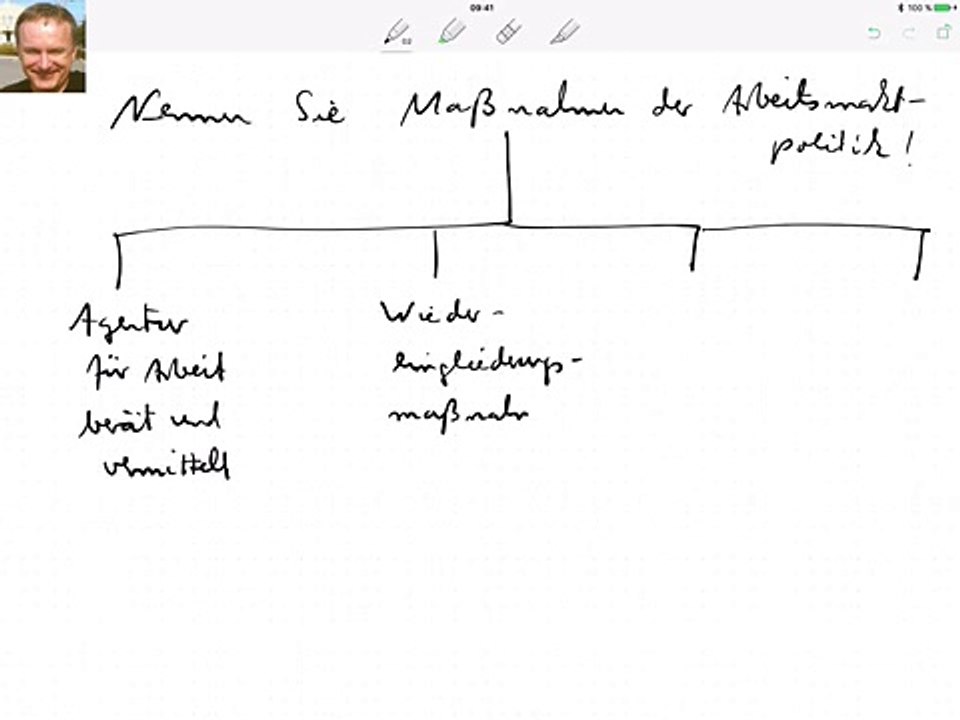 09:41
100 %
02
Nennen Sie Maßnahmen der Arbeitsmarkt-
politik!
Agentur
für Arbeit
berät und
vermittelt
Wieder-
eingliederungs-
maßnahm